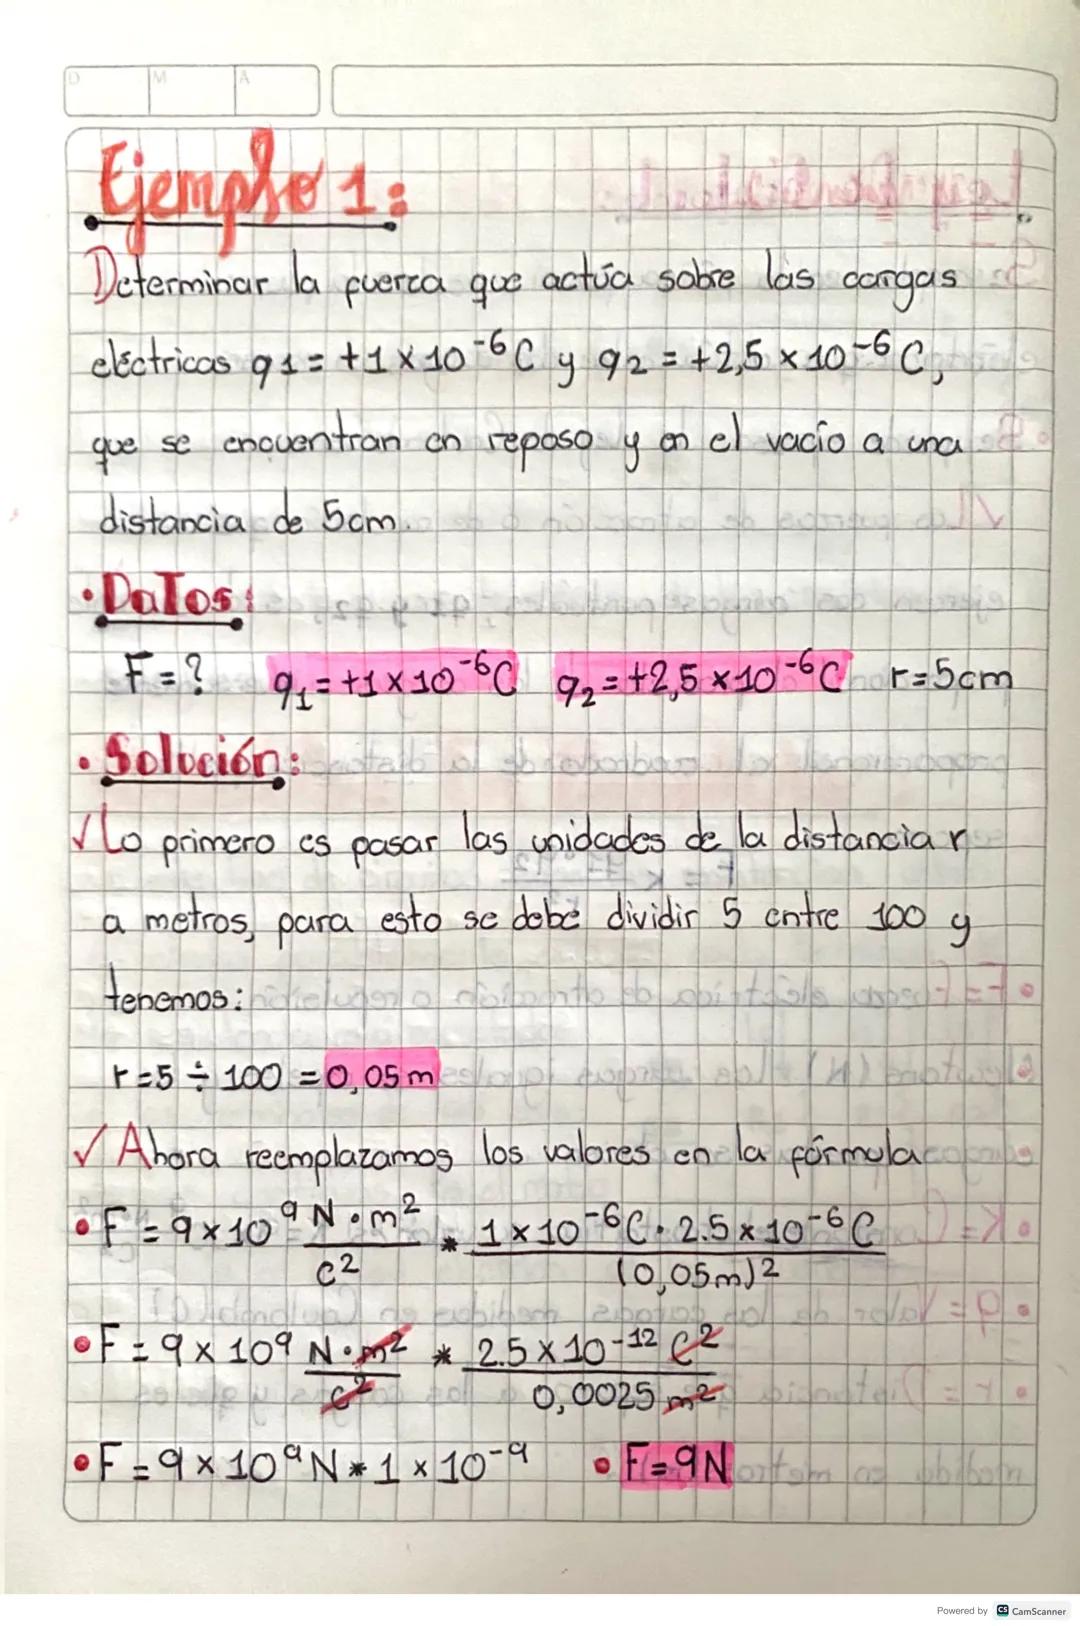 D M A
Ejemplo 1:
Determinar la fuerza que actúa sobre las cargas
eléctricas q1 = +1 x 10⁻⁶ C y q2 = +2,5 x 10⁻⁶ C,
que se encuentran en reposo y en el vacio a una
distancia de 5cm.
• Datos:
F = ? q₁ = +1 x 10⁻⁶C q₂ = +2,5 x 10⁻⁶C r = 5cm
• Solución:
✓ Lo primero es pasar las unidades de la distancia r
a metros, para esto se debe dividir 5 entre 100 y
tenemos:
r = 5 ÷ 100 = 0,05 m
✓ Ahora reemplazamos los valores en la fórmula
• F = 9 x 10⁹ N • m² / c² * 1 x 10⁻⁶C • 2.5 x 10⁻⁶ C / (0,05m)²
• F = 9 x 10⁹ N • m² / c² * 2.5 x 10⁻¹² C² / 0,0025 m²
• F = 9 x 10⁹ N * 1 x 10⁻⁹ • F = 9N
Powered by CS CamScanner